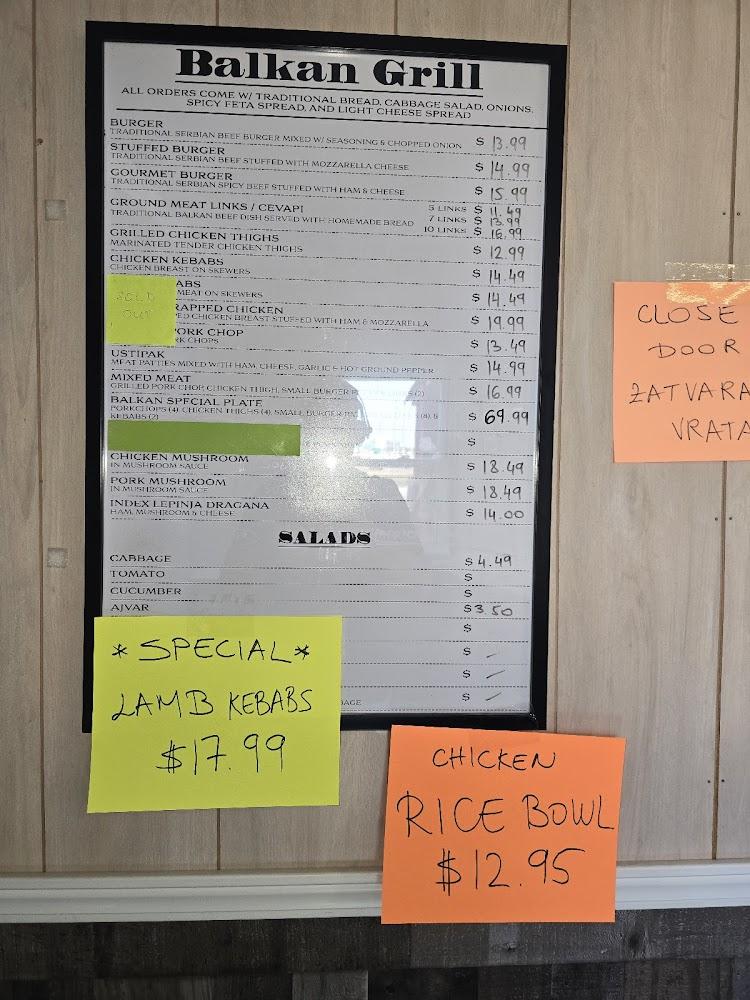 Balkan Grill
ALL ORDERS COME W/ TRADITIONAL BREAD, CABBAGE SALAD, ONIONS,
SPICY FETA SPREAD, AND LIGHT CHEESE SPREAD
BURGER
TRADITIONAL SERBIAN BEEF BURGER MIXED W/ SEASONING & CHOPPED ONION $ 13.99
STUFFED BURGER
TRADITIONAL SERBIAN BEEF STUFFED WITH MOZZARELLA CHEESE $ 14.99
GOURMET BURGER
TRADITIONAL SERBIAN SPICY BEEF STUFFED WITH HAM & CHEESE $ 15.99
GROUND MEAT LINKS / CEVAPI 5 LINKS $ 11.49
TRADITIONAL BALKAN BEEF DISH SERVED WITH HOMEMADE BREAD 7 LINKS $ 13.99
10 LINKS $ 16.99
GRILLED CHICKEN THIGHS
MARINATED TENDER CHICKEN THIGHS $ 12.99
CHICKEN KEBABS
CHICKEN BREAST ON SKEWERS $ 14.49
SOLD OUT
ABS
MEAT ON SKEWERS $ 14.49
RAPPED CHICKEN
PED CHICKEN BREAST STUFFED WITH HAM & MOZZARELLA $ 19.99
PORK CHOP
RK CHOPS $ 13.49
USTIPAK
MEAT PATTIES MIXED WITH HAM, CHEESE, GARLIC & HOT GROUND PEPPER $ 14.99
MIXED MEAT
GRILLED PORK CHOP, CHICKEN THIGH, SMALL BURGER (2) $ 16.99
BALKAN SPECIAL PLATE
PORKCHOPS (4), CHICKEN THIGHS (4), SMALL BURGER (8), & $ 69.99
KEBABS (2)
$
CHICKEN MUSHROOM
IN MUSHROOM SAUCE $ 18.49
PORK MUSHROOM
IN MUSHROOM SAUCE $ 18.49
INDEX LEPINJA DRAGANA
HAM, MUSHROOM & CHEESE $ 14.00
SALADS
CABBAGE $ 4.49
TOMATO $
CUCUMBER $
AJVAR $ 3.50
$
$ -
$ -
$ -
BAGE
* SPECIAL *
LAMB KEBABS
$17.99
CHICKEN
RICE BOWL
$12.95
CLOSE
DOOR
ZATVARA
VRATA